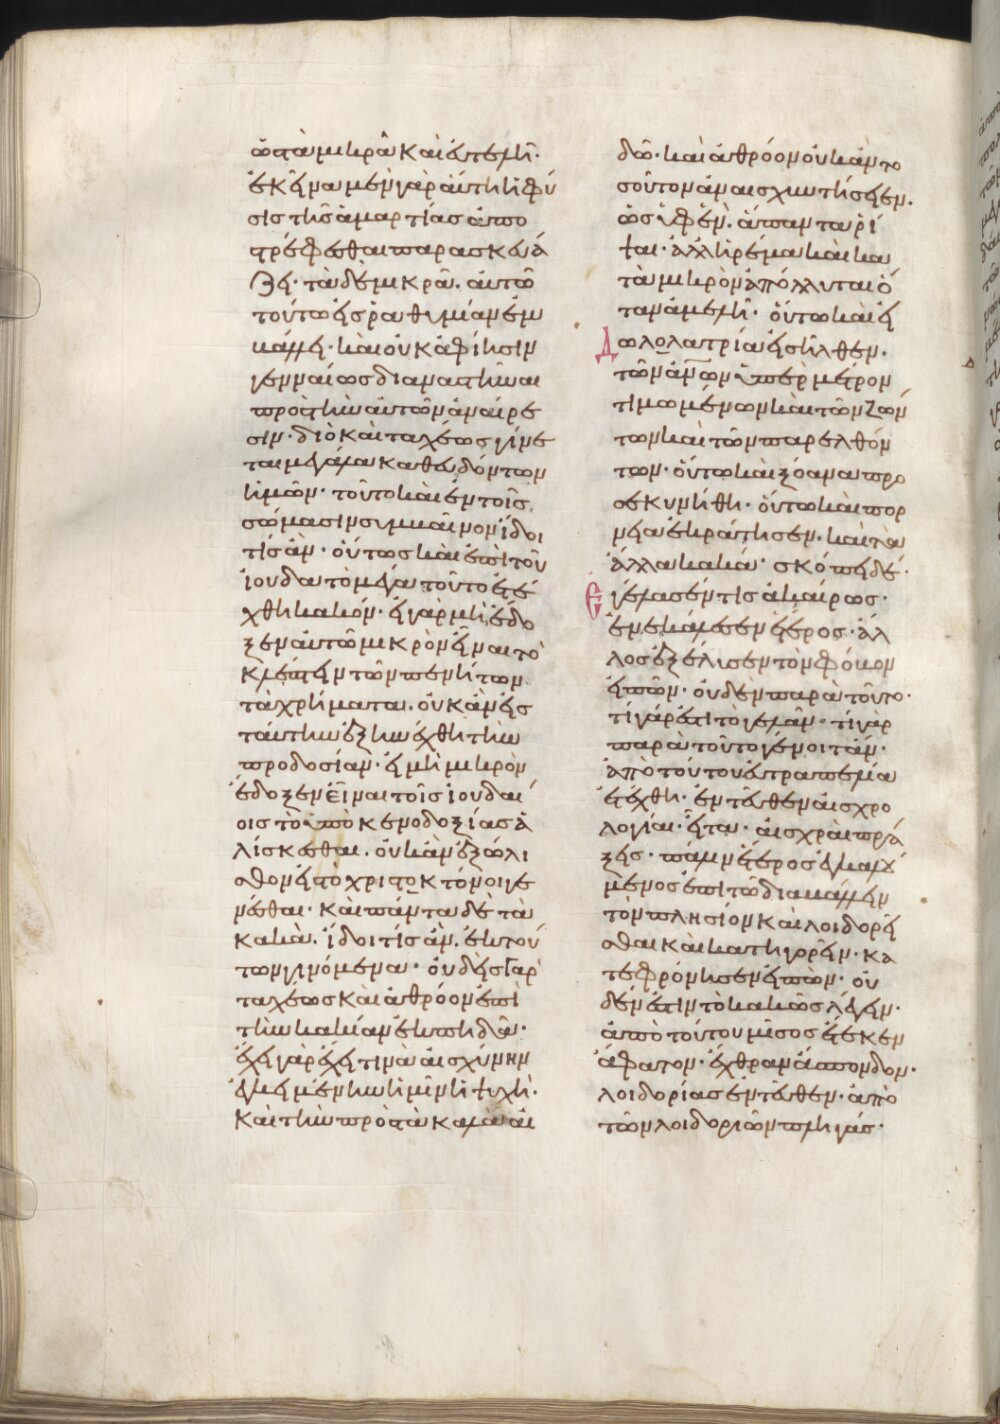 ὡς τὰ μικρὰ καὶ εὐτελῆ·
ἐκεῖνα μὲν γὰρ αὐτὴ ἡ φύ
σις τῆς ἁμαρτίας ἀπο
στρέφεσθαι παρασκευά
ζει· τὰ δὲ μικρὰ. αὐτῶ
τούτω εἰς ῥαθυμίαν ἐμ
βάλλει· καὶ οὐκ ἀφίησιν
γενναίως διαναστῆναι
πρὸς τὴν αὐτῶν ἀναίρε
σιν· διὸ καὶ ταχέως γίνε
ται μεγάλα καθευδόντων
ἡμῶν· τοῦτο καὶ ἐν τοῖς
σώμασιν συμβαῖνον ἴδοι
τίς ἄν· οὕτως καὶ ἐπὶ τοῦ
ἰούδα τὸ μέγα τοῦτο ἐτέ
χθη κακόν· εἰ γὰρ μὴ ἔδο
ξεν αὐτῶ μικρὸν εἶναι τὸ
κλέπτειν τῶν πενήτων
τὰ χρήματα. οὐκ ἂν εἰς
ταύτην ἐξηνέχθη τὴν
προδοσίαν· εἰ μὴ μικρὸν
ἔδοξεν εἶναι τοῖς ἰουδαί
οις τὸ ὑπὸ κενοδοξίας ἁ
λίσκεσθαι. οὐκ ἂν ἐξώλι
σθον εἰς τὸ χριστοκτόνοι γε
νέσθαι· καὶ πάντα δὲ τὰ
κακὰ. ἴδοι τίς ἂν. ἐκ τού
των γινόμενα· οὐδεὶς γὰρ
ταχέως καὶ ἀθρόον ἐπὶ
τὴν κακίαν ἐκπηδᾶ·
ἔχει γὰρ ἔχει τινὰ αἰσχύνην
ἐγκειμένην ἡμῖν ἡ ψυχὴ·
καὶ τὴν πρὸς τὰ καλὰ αἰ
δῶ· καὶ ἀθρόον οὐκ ἄν το
σοῦτον ἀναισχυντήσειεν.
ὡς ὑφὲν. ἅπαντα ῥῖ
ψαι· ἀλλ' ἠρέμα καὶ κα
τὰ μικρὸν ἀπόλλυται ὅ
ταν ἀμελῆ· οὕτω καὶ εἰ
δωλολατρία εἰσῆλθεν·
τῶν ἀνων ὑπὲρ μέτρον
τιμωμένων καὶ τῶν ζών
των καὶ τῶν παρελθόν
των· οὕτω καὶ ξόανα προ
σεκυνήθη· οὕτω καὶ πορ
νεία ἐκράτησεν. καὶ τὰ
ἄλλα κακά· σκόπει δέ·
ἐγέλασέν τις ἀκαίρως·
ἐνεκάλεσεν ἕτερος· ἄλ
λος ἐξέλισεν τὸν φόβον
εἰπὼν· οὐδὲν παρὰ τοῦτο·
τί γάρ ἐστι τὸ γελᾶν· τί γὰρ
παρὰ τοῦτο γένοιτ' ἄν·
ἀπὸ τούτου εὐτραπελία
ἐτέχθη· ἐντεῦθεν αἰσχρο
λογίαι· εἶτα· αἰσχραὶ πρά
ξεις· πάλιν ἕτερος ἐγκαλού
μενος ἐπὶ τῶ διαβάλλειν
τὸν πλησίον καὶ λοιδορεῖ
σθαι καὶ κατηγορεῖν· κα
τεφρόνησεν εἰπὼν· οὐ
δέν ἐστιν τὸ κακῶς λέγειν·
ἀπὸ τούτου μῖσος ἔτεκεν
ἄφατον· ἔχθραν ἄσπονδον·
λοιδορίας ἐντεῦθεν· ἀπὸ
τῶν λοιδοριῶν πληγάς·